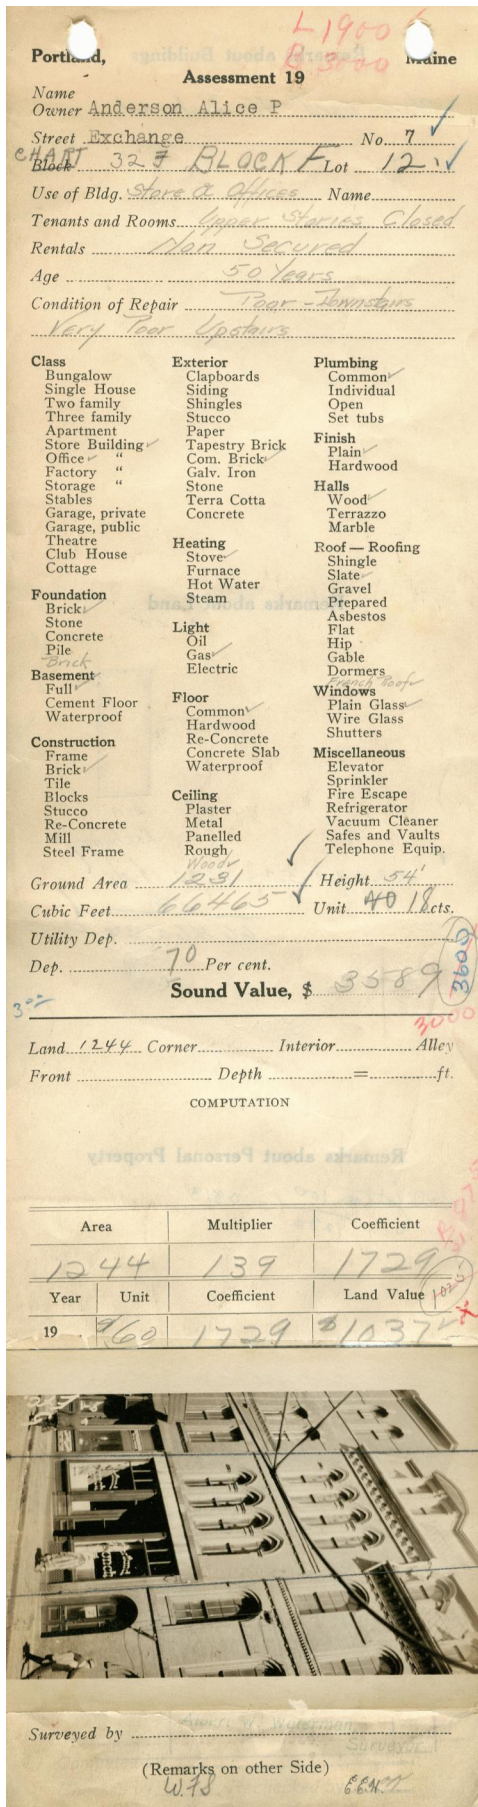 L 1900
B 3000
Portland, Maine
Assessment 19
Name
Owner Anderson Alice P
Street Exchange No. 7
CHART Block 327 BLOCK F Lot 12
Use of Bldg. Store & Offices Name
Tenants and Rooms Upper Stories Closed
Rentals Non Secured
Age 50 Years
Condition of Repair Poor - Downstairs
Very Poor Upstairs
Class
Bungalow
Single House
Two family
Three family
Apartment
Store Building ✓
Office ✓ "
Factory "
Storage "
Stables
Garage, private
Garage, public
Theatre
Club House
Cottage
Foundation
Brick ✓
Stone
Concrete
Pile
Brick
Basement
Full ✓
Cement Floor
Waterproof
Construction
Frame
Brick ✓
Tile
Blocks
Stucco
Re-Concrete
Mill
Steel Frame
Exterior
Clapboards
Siding
Shingles
Stucco
Paper
Tapestry Brick
Com. Brick ✓
Galv. Iron
Stone
Terra Cotta
Concrete
Heating
Stove ✓
Furnace
Hot Water
Steam
Light
Oil
Gas ✓
Electric
Floor
Common ✓
Hardwood
Re-Concrete
Concrete Slab
Waterproof
Ceiling
Plaster
Metal
Panelled
Rough
Wood ✓
Plumbing
Common ✓
Individual
Open
Set tubs
Finish
Plain ✓
Hardwood
Halls
Wood ✓
Terrazzo
Marble
Roof — Roofing
Shingle
Slate ✓
Gravel
Prepared
Asbestos
Flat
Hip
Gable
Dormers
French Roof ✓
Windows
Plain Glass ✓
Wire Glass
Shutters
Miscellaneous
Elevator
Sprinkler
Fire Escape
Refrigerator
Vacuum Cleaner
Safes and Vaults
Telephone Equip.
Ground Area 1231 Height 54'
Cubic Feet 66465 Unit 40 18 cts.
Utility Dep.
Dep. 70 Per cent.
Sound Value, $ 3589
3600
3000
Land 1244 Corner Interior Alley
Front Depth = ft.
COMPUTATION
Area Multiplier Coefficient
1244 139 1729
Year Unit Coefficient Land Value
1025
19 $/60 1729 $1037
Surveyed by
Surveyor
(Remarks on other Side)
W.F.S E.E.N.